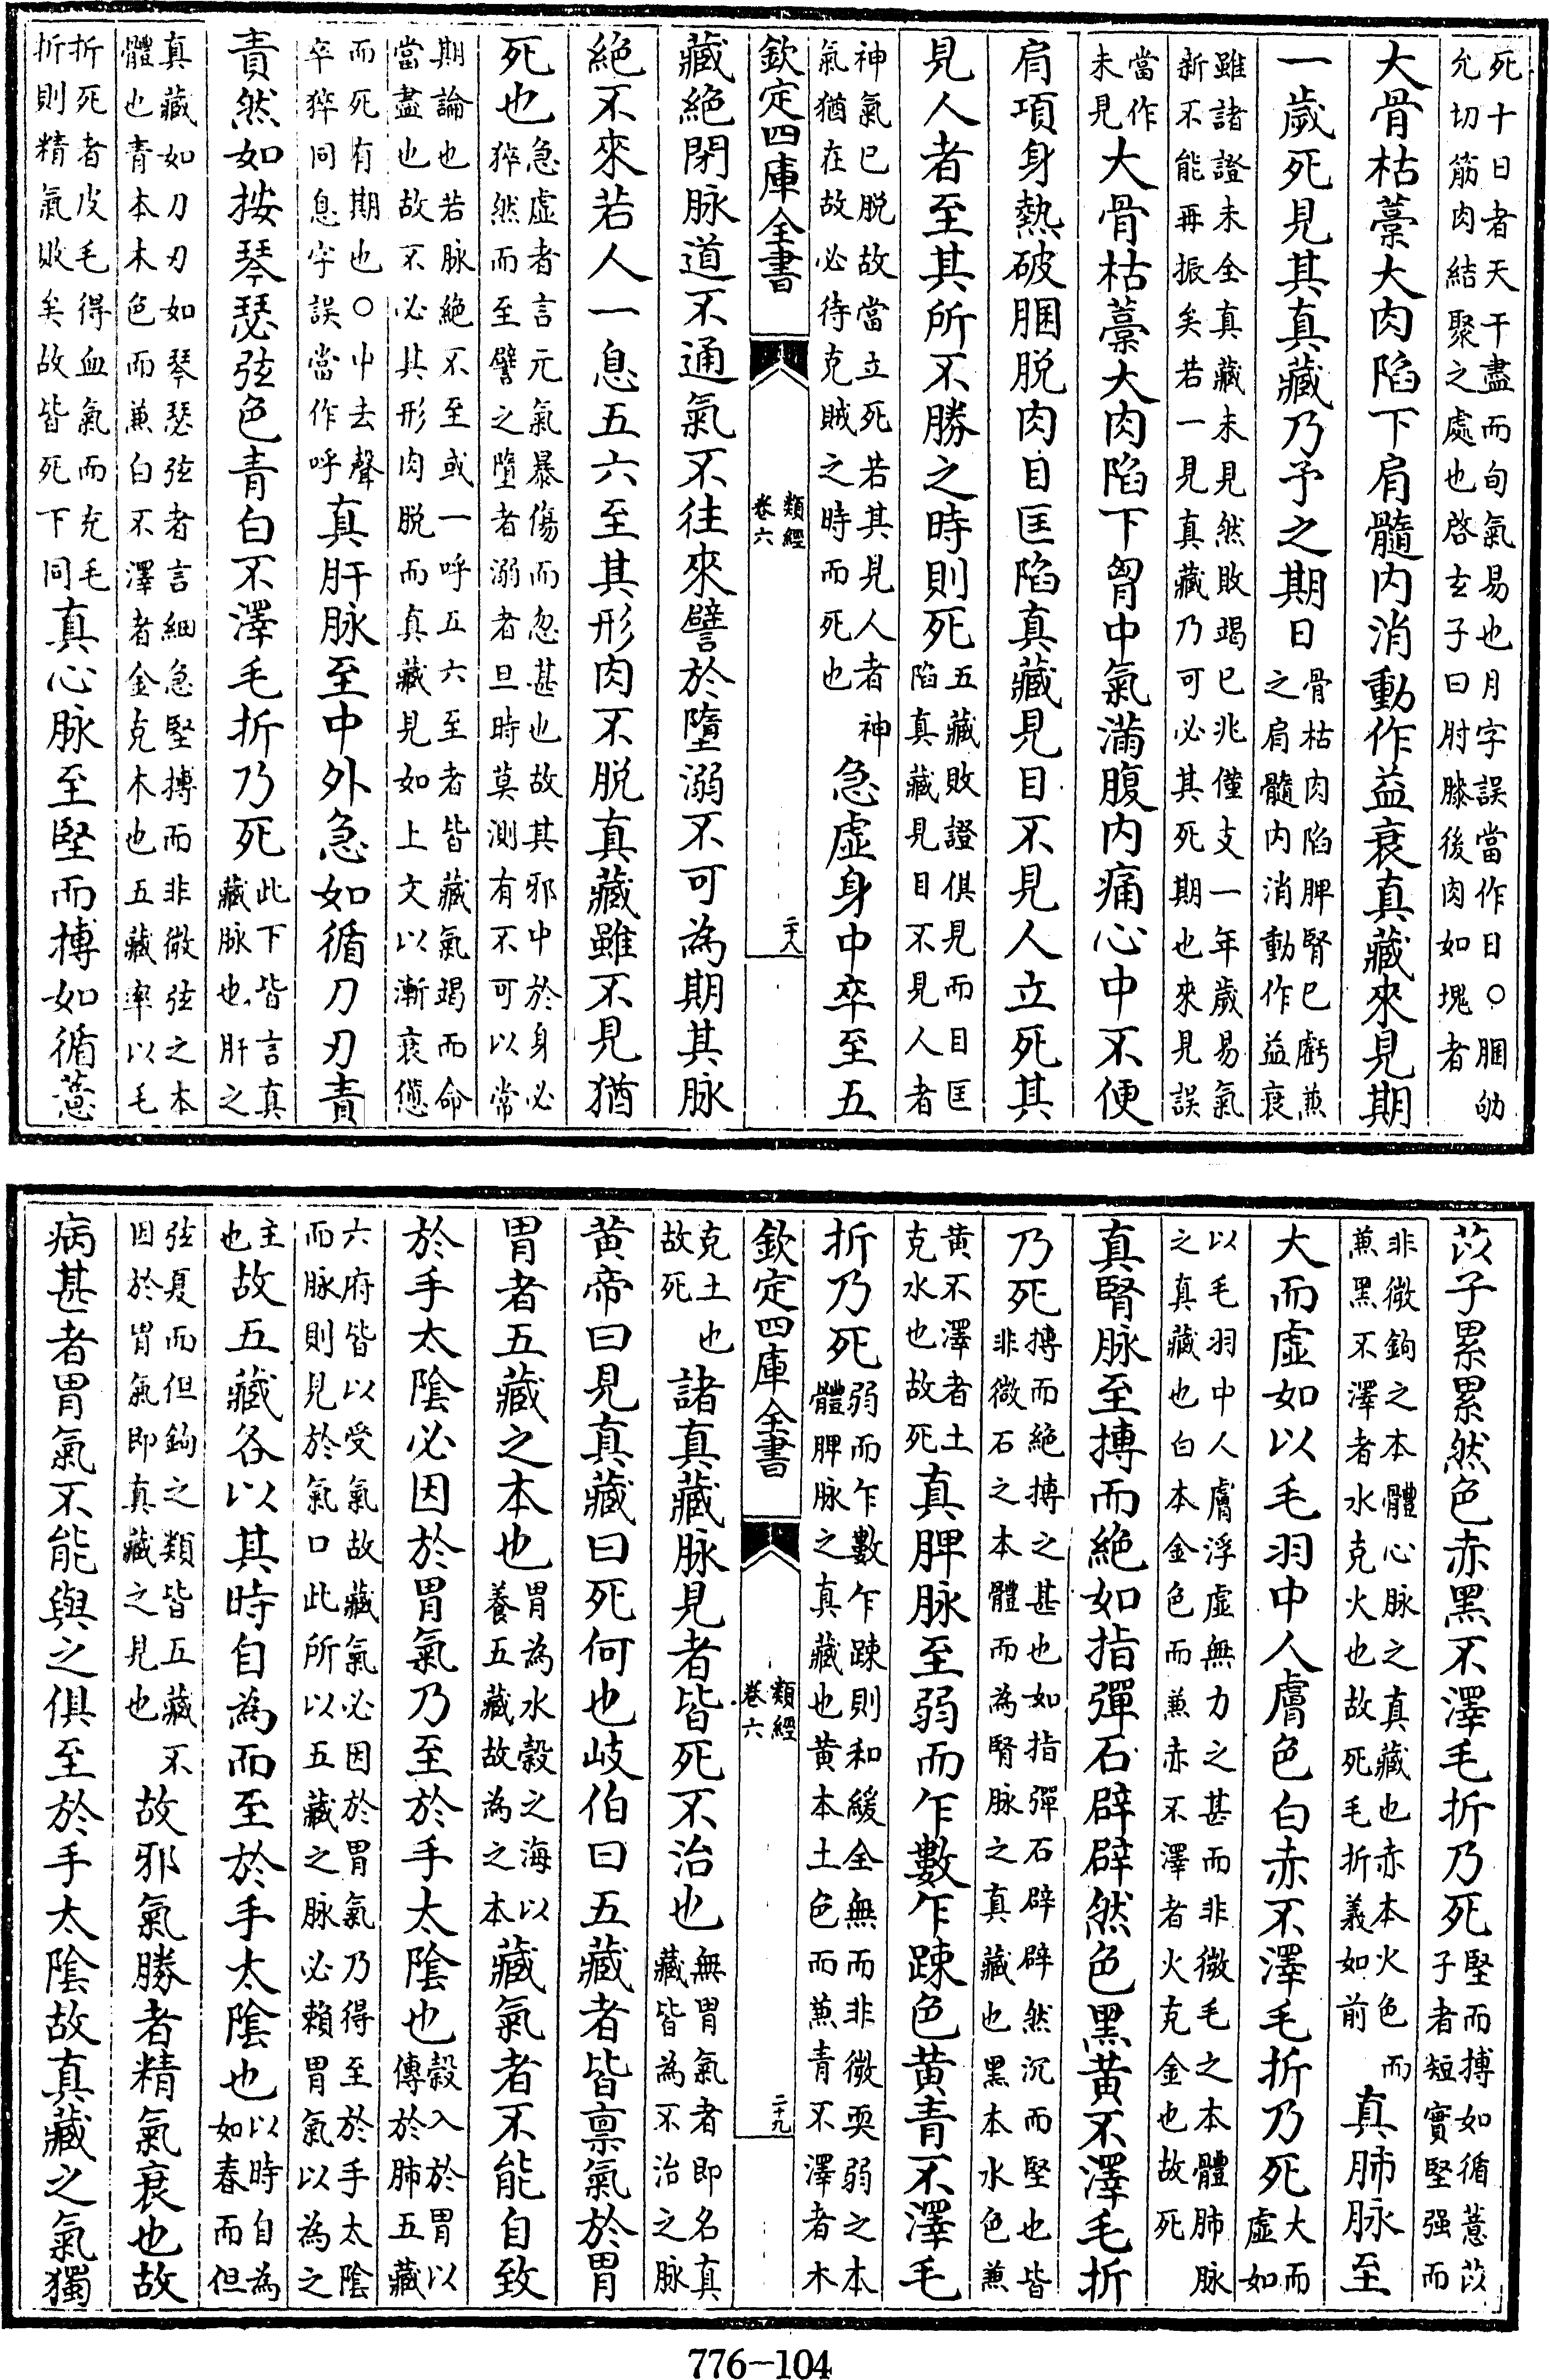 死十日者天干盡而旬氣易也月字誤當作日○䐃劬
允切筋肉結聚之處也啓玄子曰肘膝後肉如塊者
大骨枯藁大肉陷下肩髓内消動作益衰真藏來見期
一歲死見其真藏乃予之期日骨枯肉陷脾腎已虧兼
之肩髓内消動作益衰
雖諸證未全真藏未見然敗竭已兆僅支一年歲易氣
新不能再振矣若一見真藏乃可必其死期也來見誤
當作
未見大骨枯藁大肉陷下胷中氣滿腹内痛心中不便
肩項身熱破䐃脱肉目匡陷真藏見目不見人立死其
見人者至其所不勝之時則死五藏敗證俱見而目匡
陷真藏見目不見人者
神氣已脱故當立死若其見人者神
氣猶在故必待克賊之時而死也急虛身中卒至五
欽定四庫全書
類經
卷六
二十八
藏絶閉脉道不通氣不往來譬於墮溺不可為期其脉
絶不來若人一息五六至其形肉不脱真藏雖不見猶
死也急虛者言元氣暴傷而忽甚也故其邪中於身必
猝然而至譬之墮者溺者旦時莫測有不可以常
期論也若脉絶不至或一呼五六至者皆藏氣竭而命
當盡也故不必其形肉脱而真藏見如上文以漸衰憊
而死有期也○中去聲
卒猝同息字誤當作呼真肝脉至中外急如循刀刃責
責然如按琴瑟弦色青白不澤毛折乃死此下皆言真
藏脉也肝之
真藏如刀刃如琴瑟弦者言細急堅搏而非微弦之本
體也青本木色而兼白不澤者金克木也五藏率以毛
折死者皮毛得血氣而充毛
折則精氣敗矣故皆死下同真心脉至堅而搏如循薏
苡子累累然色赤黑不澤毛折乃死堅而搏如循薏苡
子者短實堅强而
非微鉤之本體心脉之真藏也赤本火色而
兼黑不澤者水克火也故死毛折義如前真肺脉至
大而虛如以毛羽中人膚色白赤不澤毛折乃死大而
虛如
以毛羽中人膚浮虛無力之甚而非微毛之本體肺脉
之真藏也白本金色而兼赤不澤者火克金也故死
真腎脉至搏而絶如指彈石辟辟然色黑黄不澤毛折
乃死搏而絶搏之甚也如指彈石辟辟然沉而堅也皆
非微石之本體而為腎脉之真藏也黑本水色兼
黄不澤者土
克水也故死真脾脉至弱而乍數乍踈色黄青不澤毛
折乃死弱而乍數乍踈則和緩全無而非微耎弱之本
體脾脉之真藏也黄本土色而兼青不澤者木
欽定四庫全書
類經
卷六
二十九
克土也
故死諸真藏脉見者皆死不治也無胃氣者即名真
藏皆為不治之脉
黄帝曰見真藏曰死何也岐伯曰五藏者皆禀氣於胃
胃者五藏之本也胃為水穀之海以
養五藏故為之本藏氣者不能自致
於手太陰必因於胃氣乃至於手太陰也穀入於胃以
傳於肺五藏
六府皆以受氣故藏氣必因於胃氣乃得至於手太陰
而脉則見於氣口此所以五藏之脉必賴胃氣以為之
主
也故五藏各以其時自為而至於手太陰也以時自為
如春而但
弦夏而但鉤之類皆五藏不
因於胃氣即真藏之見也故邪氣勝者精氣衰也故
病甚者胃氣不能與之俱至於手太陰故真藏之氣獨
776-104